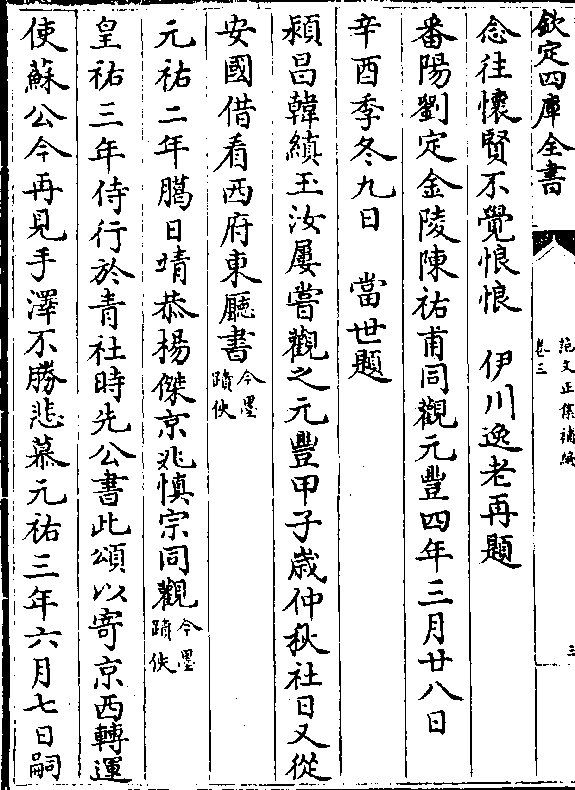 欽定四庫全書
范文正集補編
卷三
三
念往懷賢不覺悵悵　伊川逸老再題
番陽劉定金陵陳祐甫同觀元豐四年三月廿八日
辛酉季冬九日　當世題
潁昌韓縝玉汝屢嘗觀之元豐甲子歲仲秋社日又從
安國借看西府東廳書今墨蹟佚
元祐二年臈日靖恭楊傑京兆慎宗同觀今墨蹟佚
皇祐三年侍行於青社時先公書此頌以寄京西轉運
使蘇公今再見手澤不勝悲慕元祐三年六月七日嗣